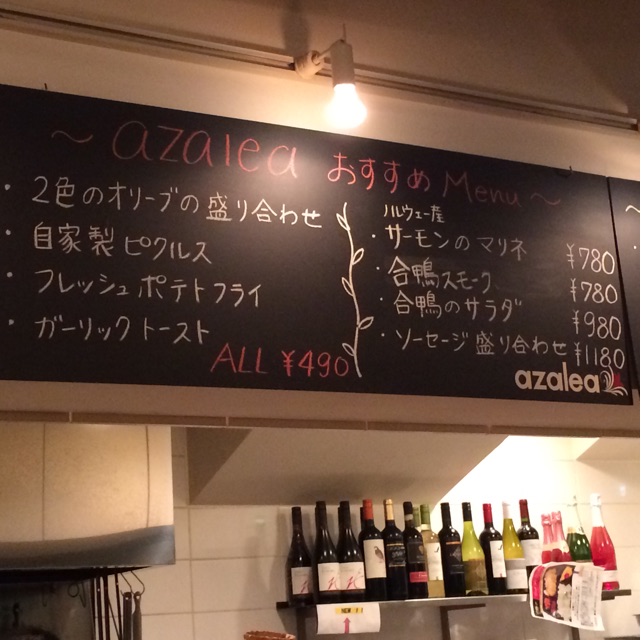 ～azalea おすすめ Menu～
・2色のオリーブの盛り合わせ
・自家製ピクルス
・フレッシュポテトフライ
・ガーリックトースト
ALL ¥490
ノルウェー産
・サーモンのマリネ ¥780
・合鴨スモーク ¥780
・合鴨のサラダ ¥980
・ソーセージ盛り合わせ ¥1180
azalea